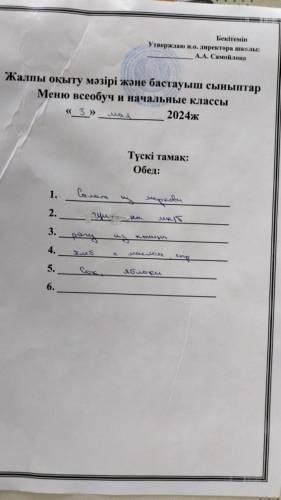 Бекітемін
Утверждаю и.о. директора школы:
А.А. Самойлова
Жалпы оқыту мәзірі және бастауыш сыныптар
Меню всеобуч и начальные классы
« 3 » мая 2024ж
Түскі тамақ:
Обед:
1. Салат из моркови
2. на
3. рагу из
4. хлеб с маслом
5. Сок, яблоки
6.